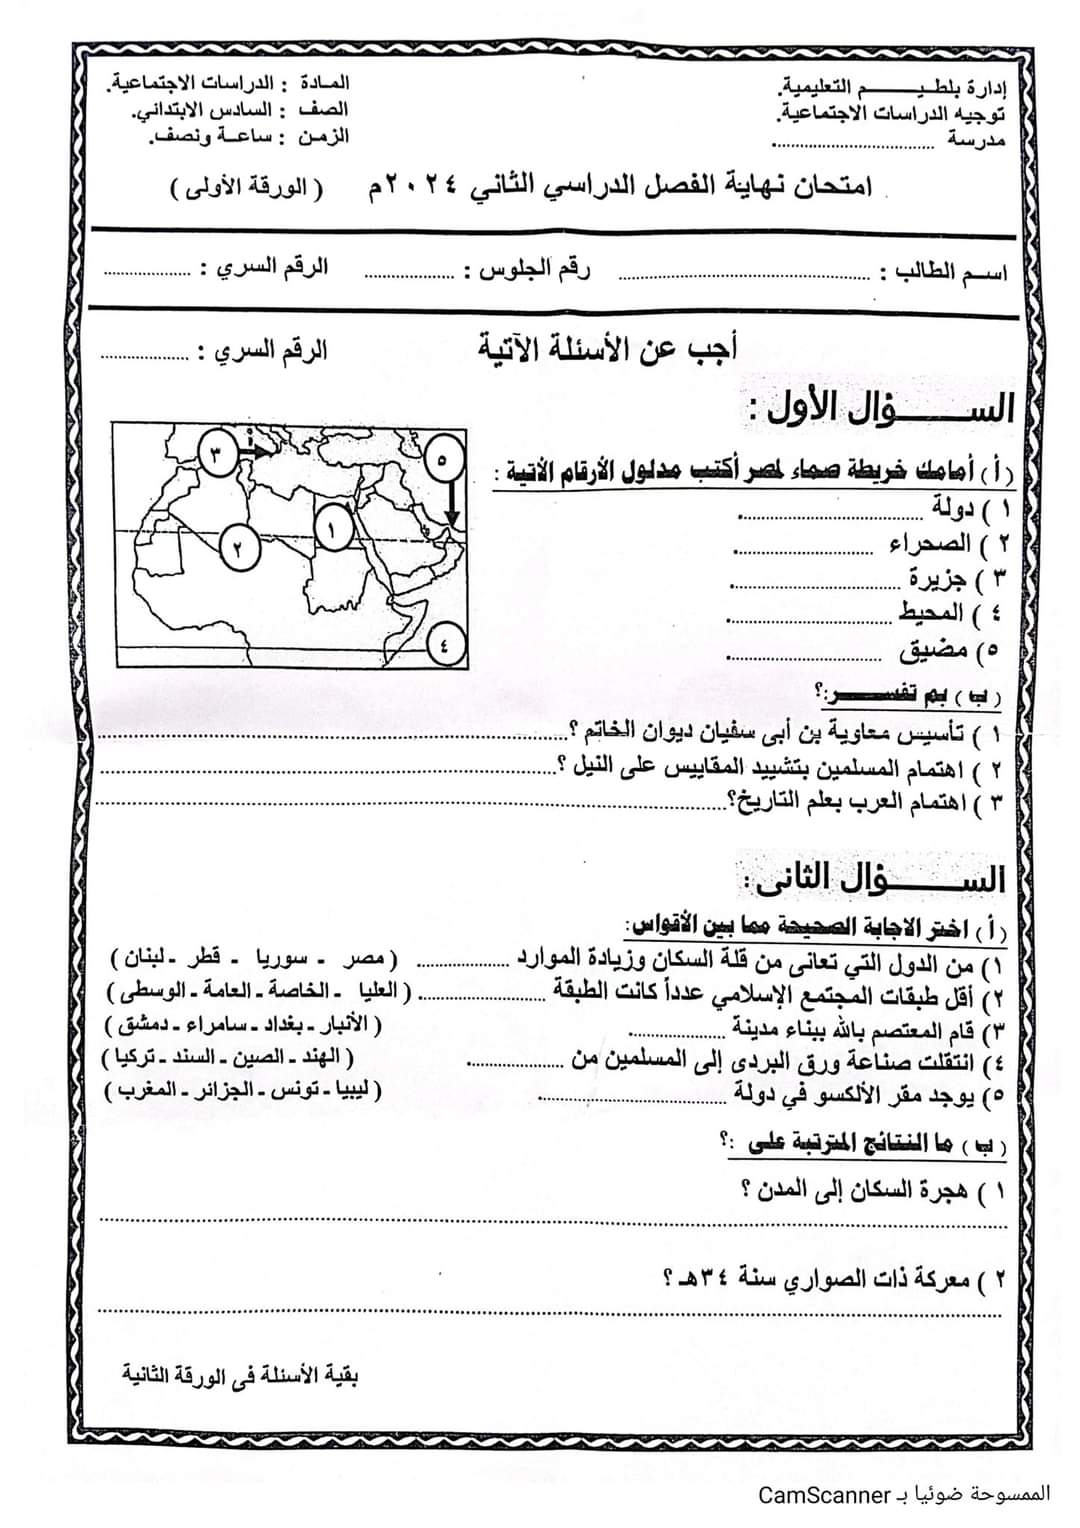 إدارة بلطيــــــم التعليمية.
المادة : الدراسات الاجتماعية.
توجيه الدراسات الاجتماعية.
الصف : السادس الابتدائي.
مدرسة ..............................
الزمن : ساعة ونصف.
امتحان نهاية الفصل الدراسي الثاني ٢٠٢٤م ( الورقة الأولى )
اسم الطالب : .............................................. رقم الجلوس : ................ الرقم السري : ................
أجب عن الأسئلة الآتية
الرقم السري : ................
الســــــؤال الأول :
( أ ) أمامك خريطة صماء لمصر أكتب مدلول الأرقام الأتية :
١ ) دولة ................................
٢ ) الصحراء ........................
٣ ) جزيرة ..............................
٤ ) المحيط ............................
٥) مضيق ...........................
٣
٥
١
٢
٤
( ب ) بم تفســـــر:؟
١ ) تأسيس معاوية بن أبى سفيان ديوان الخاتم ؟..............................................................
٢ ) اهتمام المسلمين بتشييد المقاييس على النيل ؟..............................................................
٣ ) اهتمام العرب بعلم التاريخ؟..............................................................
الســــــؤال الثانى :
( أ ) اختر الاجابة الصحيحة مما بين الأقواس:
١) من الدول التي تعانى من قلة السكان وزيادة الموارد ................ ( مصر - سوريا - قطر - لبنان )
٢) أقل طبقات المجتمع الإسلامي عدداً كانت الطبقة ...................... ( العليا - الخاصة - العامة - الوسطى )
٣) قام المعتصم بالله ببناء مدينة ................. ( الأنبار - بغداد - سامراء - دمشق )
٤) انتقلت صناعة ورق البردى إلى المسلمين من ................. ( الهند - الصين - السند - تركيا )
٥) يوجد مقر الألكسو في دولة ................................ ( ليبيا - تونس - الجزائر - المغرب )
( ب ) ما النتائج المترتبة على :؟
١ ) هجرة السكان إلى المدن ؟
................................................................................................
٢ ) معركة ذات الصواري سنة ٣٤هـ ؟
................................................................................................
بقية الأسئلة فى الورقة الثانية
الممسوحة ضوئيا بـ CamScanner